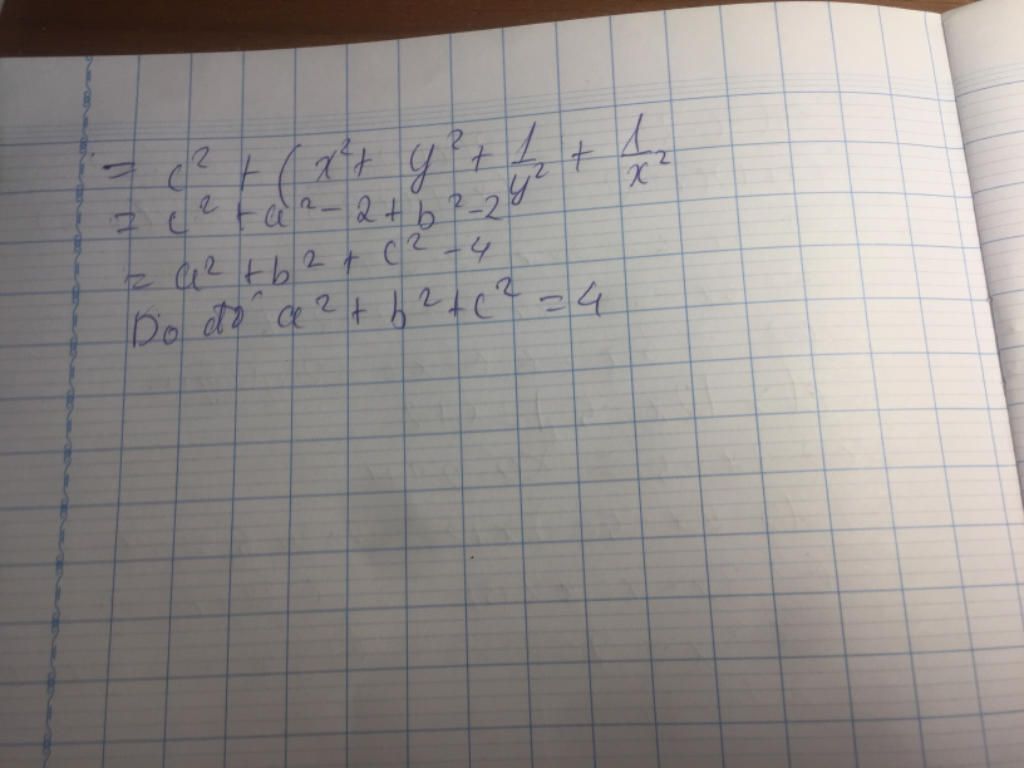 = c² + (x² + y² + 1/y² + 1/x²
= c² + a² - 2 + b² - 2
= a² + b² + c² - 4
Do đó a² + b² + c² = 4